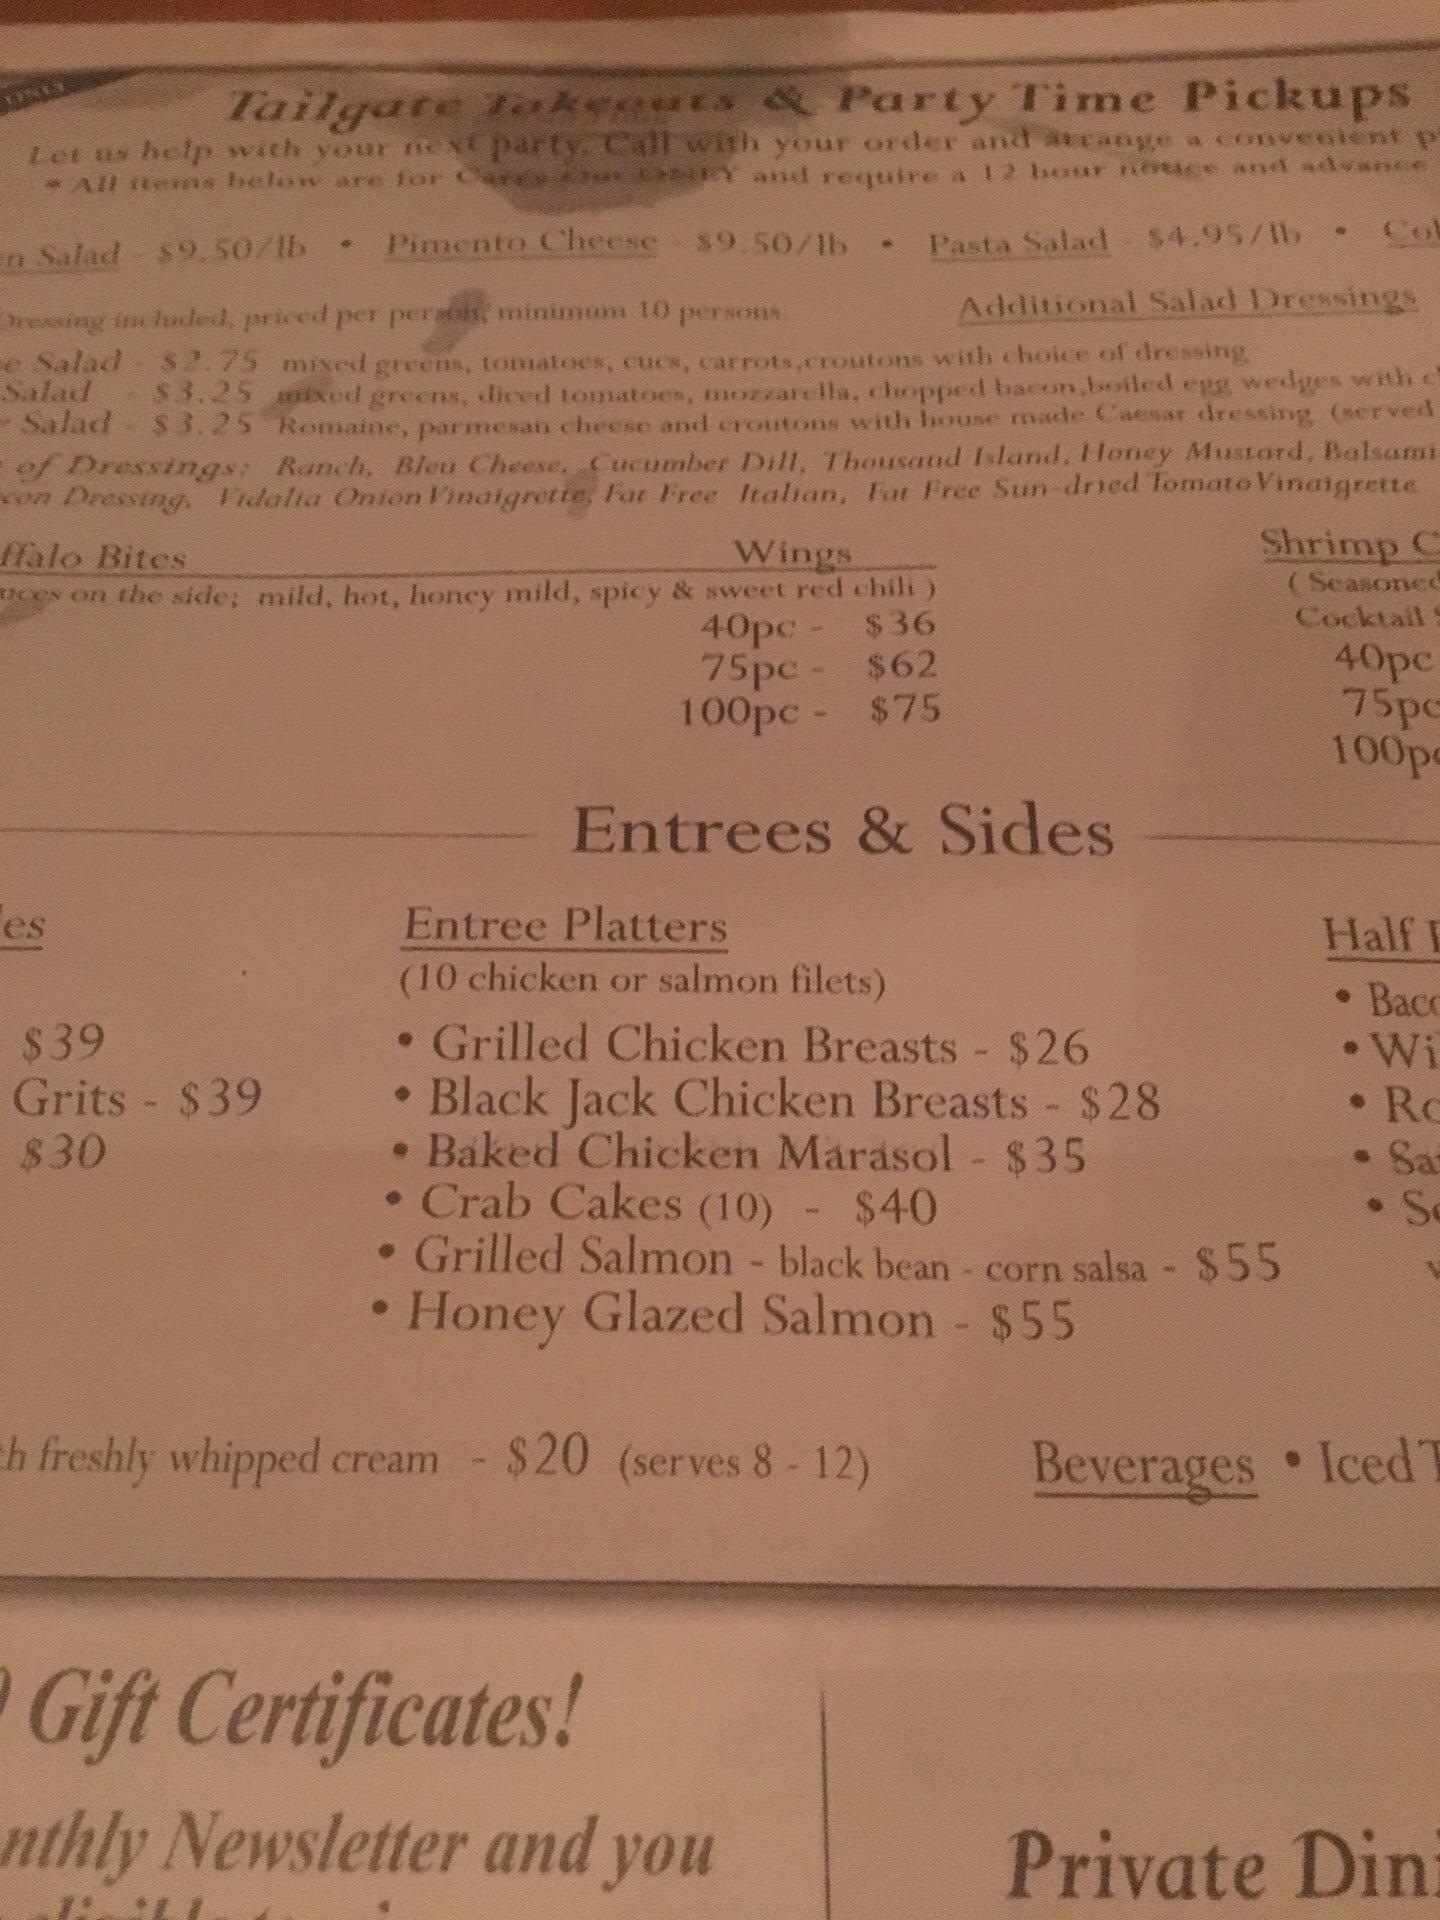 ONLY
Tailgate Takeouts & Party Time Pickups
Let us help with your next party. Call with your order and arrange a convenient p
* All items below are for Carry Out ONLY and require a 12 hour notice and advance
en Salad - $9.50/lb • Pimento Cheese - $9.50/lb • Pasta Salad - $4.95/lb • Col
Dressing included, priced per person, minimum 10 persons. Additional Salad Dressings
e Salad - $2.75 mixed greens, tomatoes, cucs, carrots,croutons with choice of dressing
Salad - $3.25 mixed greens, diced tomatoes, mozzarella, chopped bacon,boiled egg wedges with c
r Salad - $3.25 Romaine, parmesan cheese and croutons with house made Caesar dressing (served
of Dressings: Ranch, Bleu Cheese, Cucumber Dill, Thousand Island, Honey Mustard, Balsami
con Dressing, Vidalia Onion Vinaigrette, Fat Free Italian, Fat Free Sun-dried Tomato Vinaigrette
ffalo Bites Wings Shrimp C
uces on the side; mild, hot, honey mild, spicy & sweet red chili ) ( Seasoned
Cocktail S
40pc - $36 40pc
75pc - $62 75pc
100pc - $75 100pc
Entrees & Sides
les Entree Platters Half P
(10 chicken or salmon filets)
• Bac
$39 • Grilled Chicken Breasts - $26 • Wi
Grits - $39 • Black Jack Chicken Breasts - $28 • Ro
$30 • Baked Chicken Marasol - $35 • Sa
• Crab Cakes (10) - $40 • S
• Grilled Salmon - black bean - corn salsa - $55
• Honey Glazed Salmon - $55
th freshly whipped cream - $20 (serves 8 - 12) Beverages • Iced T
Gift Certificates!
nthly Newsletter and you
Private Dini